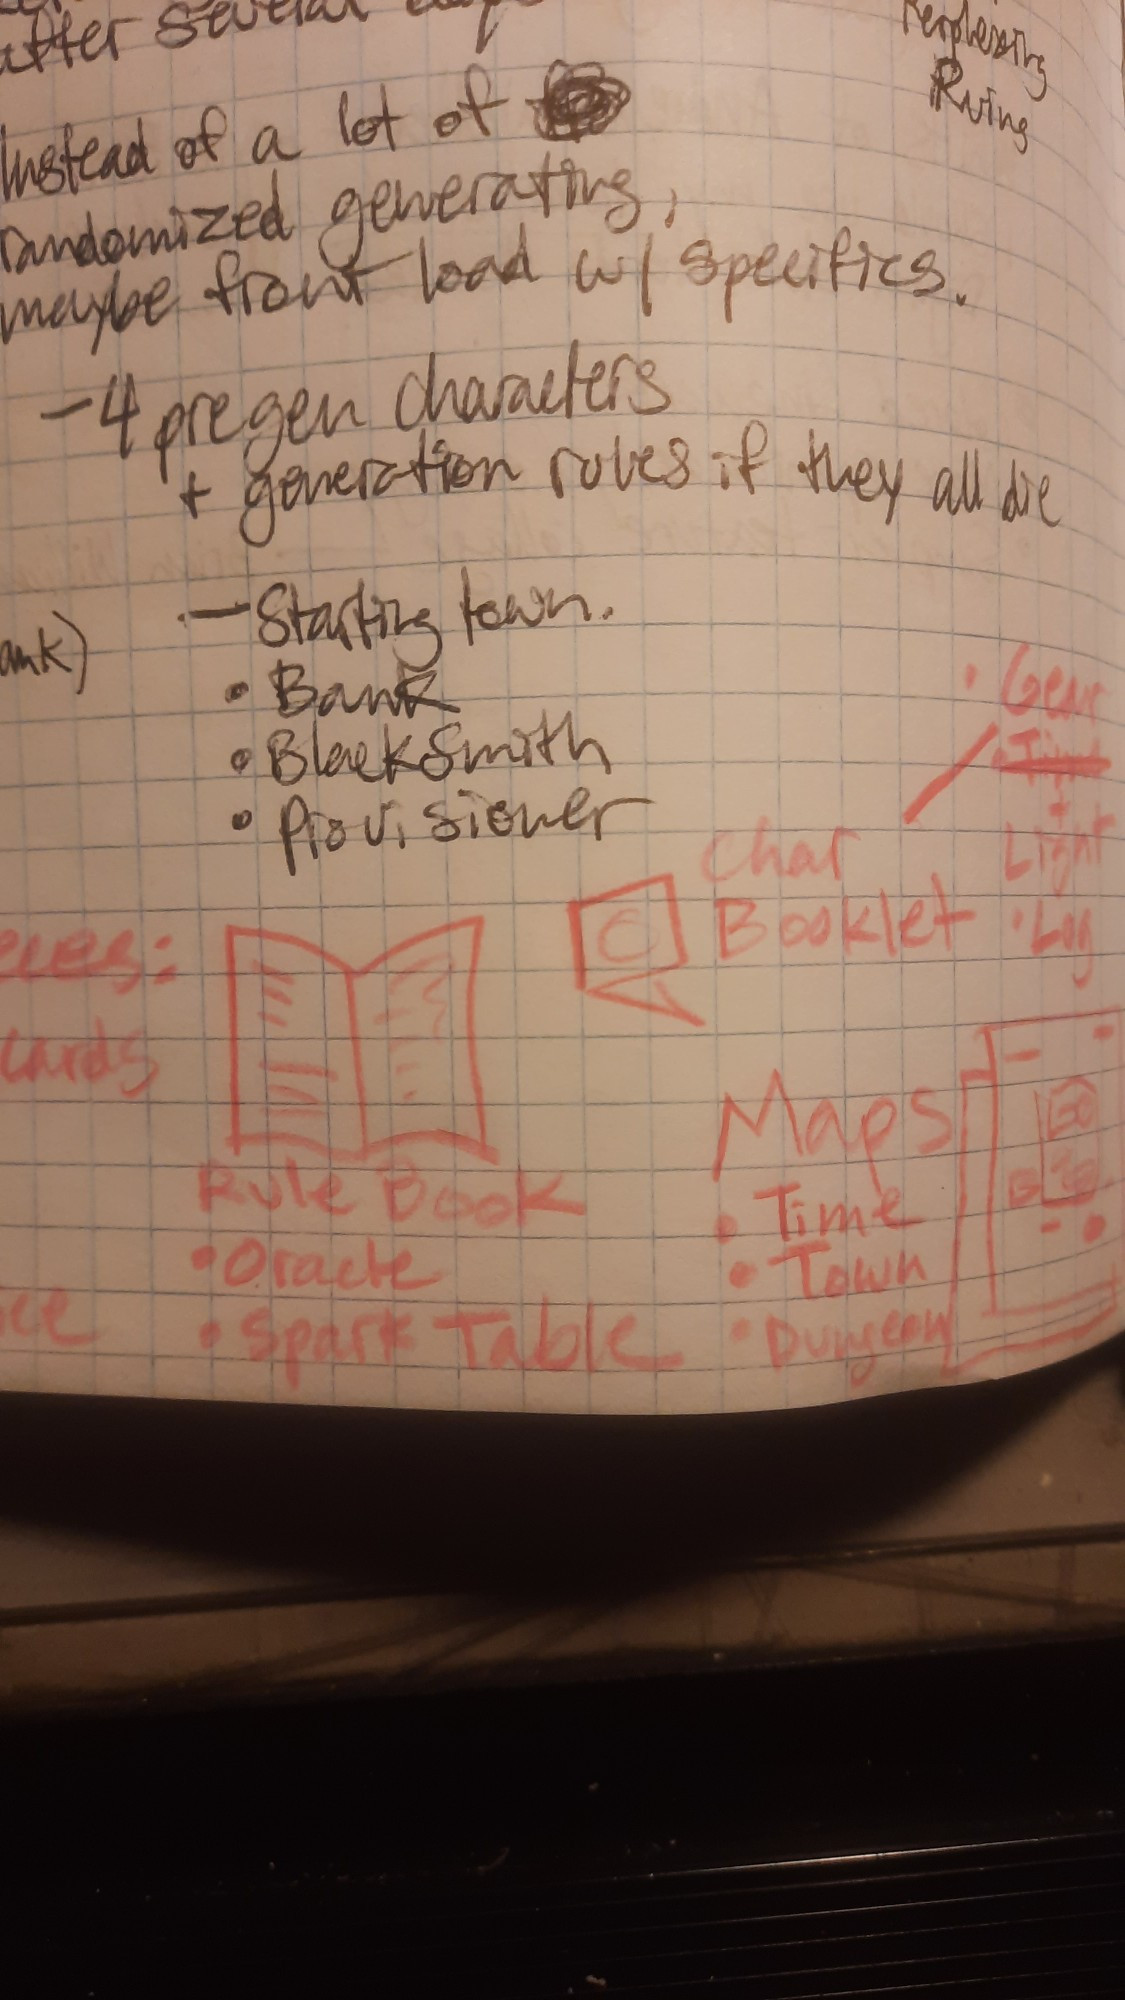 after several
Perplexing
Ruins
Instead of a lot of
randomized generating,
maybe front load w/ specifics.
- 4 pregen characters
+ generation rules if they all die
- Starting town.
• Bank
• Blacksmith
• Provisioner
ank)
• Gear
+
Light
• Log
Char
Booklet
eces:
cards
Rule Book
• Oracle
• Spark Table
ice
Maps
• Time
• Town
• Dungeon